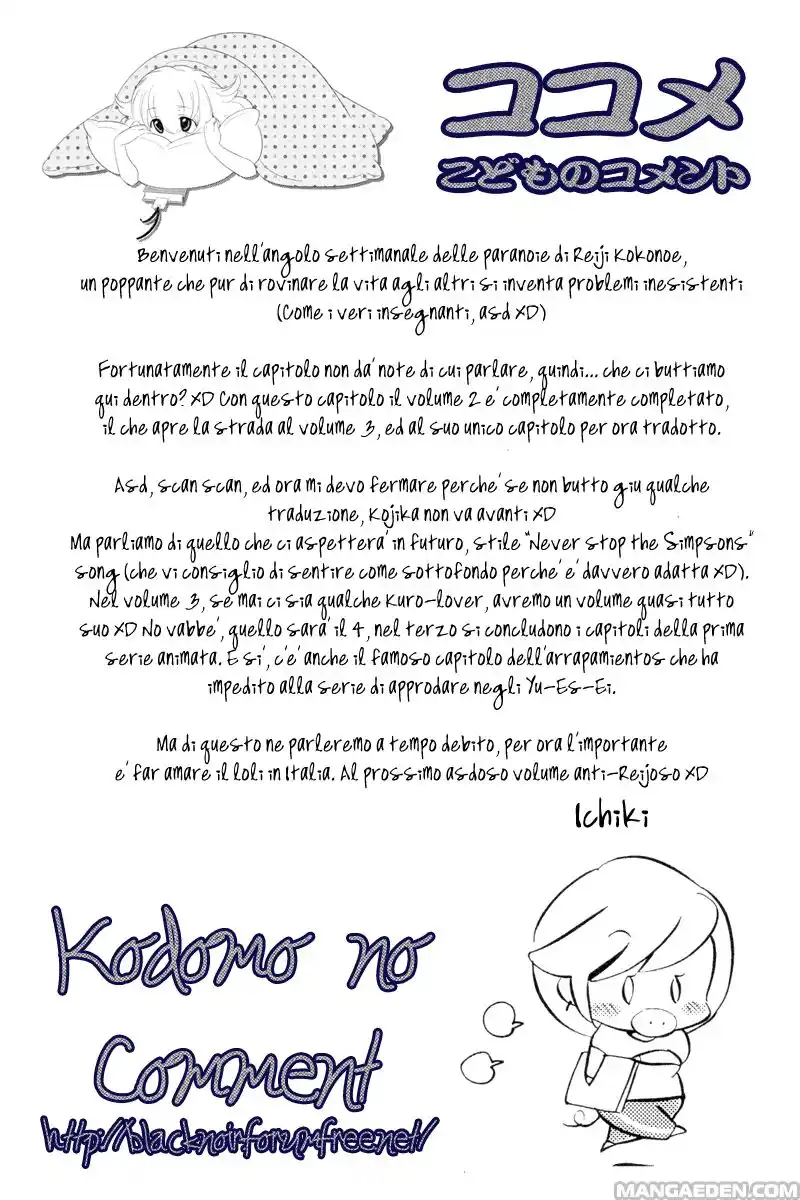 ココメ
こどものコメント
Benvenuti nell'angolo settimanale delle paranoie di Reiji Kokonoe,
un poppante che pur di rovinare la vita agli altri si inventa problemi inesistenti
(Come i veri insegnanti, asd XD)
Fortunatamente il capitolo non da' note di cui parlare, quindi... che ci buttiamo
qui dentro? XD Con questo capitolo il volume 2 e' completamente completato,
il che apre la strada al volume 3, ed al suo unico capitolo per ora tradotto.
Asd, scan scan, ed ora mi devo fermare perche' se non butto giu qualche
traduzione, Kojika non va avanti XD
Ma parliamo di quello che ci aspettera' in futuro, stile "Never stop the Simpsons"
song (che vi consiglio di sentire come sottofondo perche' e' davvero adatta XD).
Nel volume 3, se mai ci sia qualche Kuro-lover, avremo un volume quasi tutto
suo XD No vabbe', quello sara' il 4, nel terzo si concludono i capitoli della prima
serie animata. E si', c'e' anche il famoso capitolo dell'arrapamientos che ha
impedito alla serie di approdare negli Yu-Es-Ei.
Ma di questo ne parleremo a tempo debito, per ora l'importante
e' far amare il loli in Italia. Al prossimo asdoso volume anti-Reijoso XD
Ichiki
Kodomo no
Comment
http://blacknoir.forumfree.net/
MANGAEDEN.COM